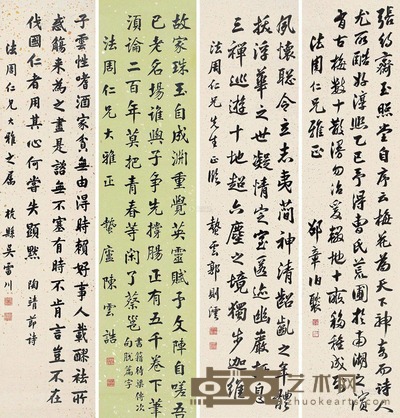 張約齋玉照堂自序云梅花為天下神奇而詩人
尤所酷好淳熙乙巳予得曹氏荒圃於南湖之濱
有古梅數十散漫勿治爰輟地十畝移種成列
法周仁兄雅正 邵章伯褧
夙懷聰令立志夷簡神清齠齔之年體
拔浮華之世凝情定室匿迹幽巖栖息
三禪巡遊十地超六塵之境獨步伽維
法周仁兄先生正 蟄雲郭則澐
故家珠玉自成淵重覺英靈賦予文陣自嗟吾
已老名場誰與子爭先撐腸正有五千卷下筆
須論二百年莫把青春等閑了蔡邕書籍待渠傳 次句脫篇字
法周仁兄大雅正 蟄廬陳雲誥
子雲性嗜酒家貧無由得時賴好事人載醪祛所
惑觴來為之盡是諮無不塞有時不肯言豈不在
伐國仁者用其心何嘗失顯默 陶靖節詩
法周仁兄大雅之屬 杭縣吳雲川